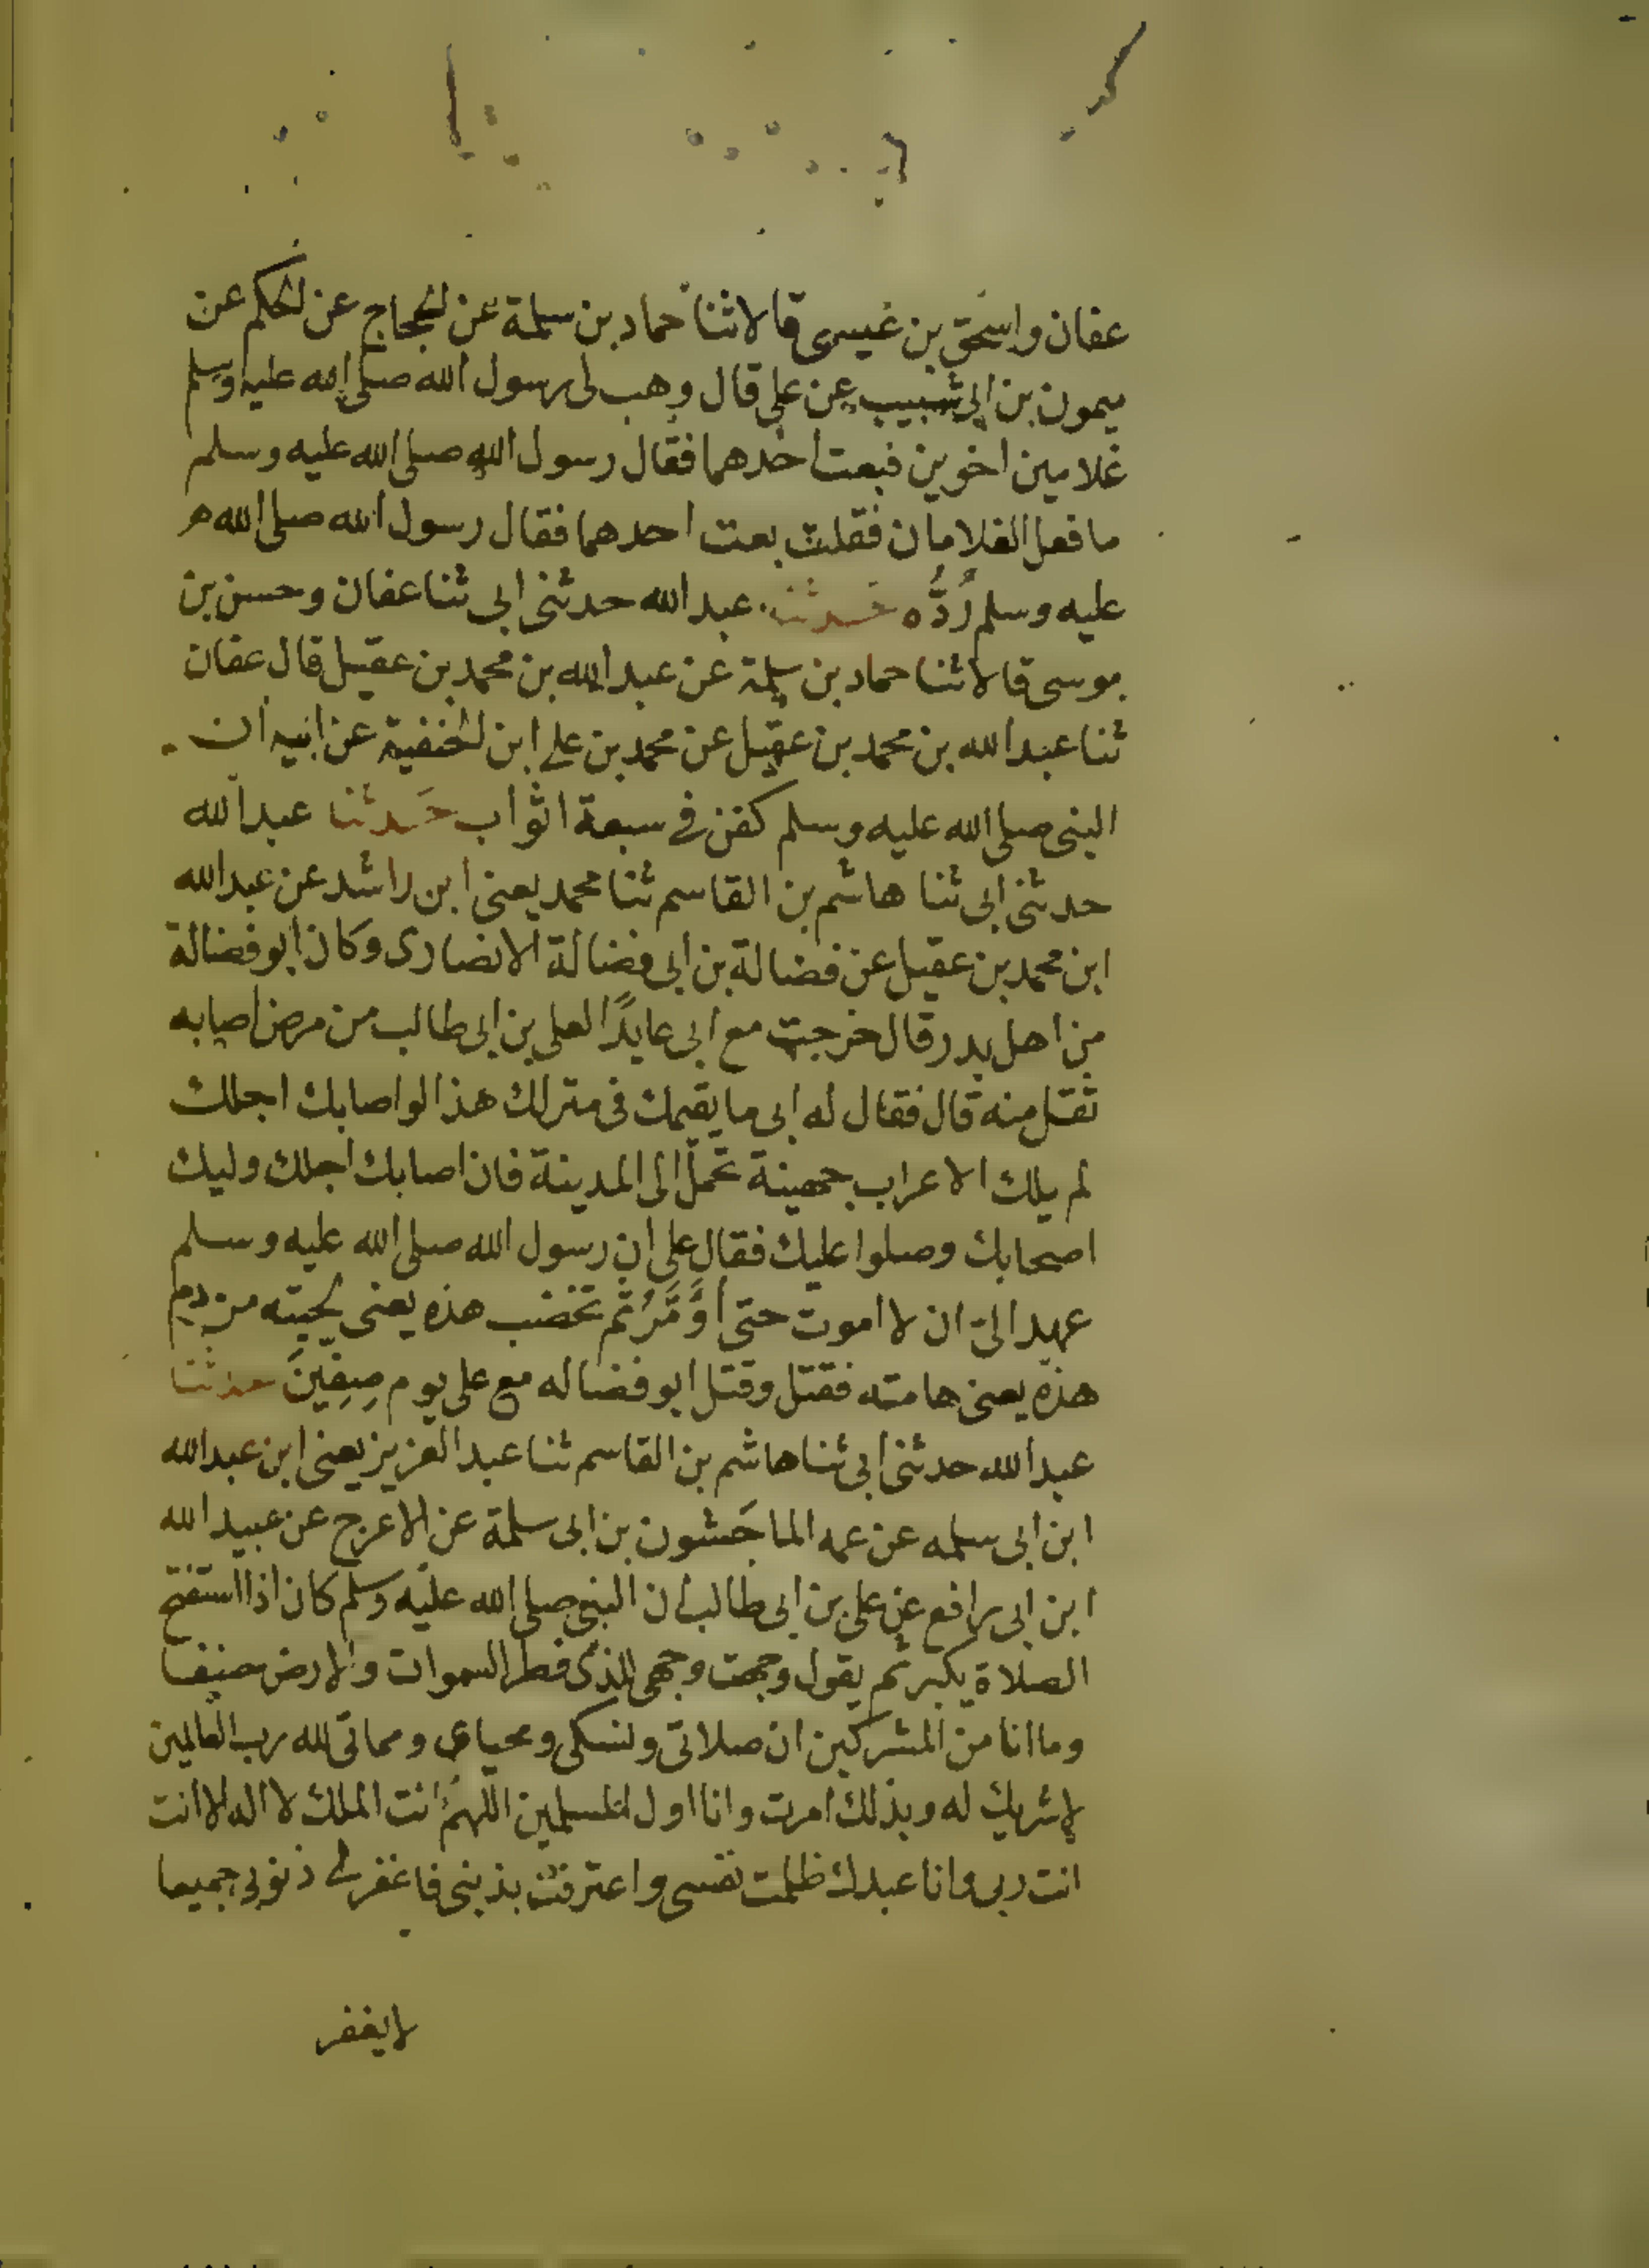 عفان واسحق بن عيسى قالا ثنا حماد بن سلمة عن الحجاج عن الحكم عن
ميمون بن ابى شبيب عن على قال وهب لى رسول الله صلى الله عليه وسلم
غلامين اخوين فبعت احدهما فقال رسول الله صلى الله عليه وسلم
ما فعل الغلامان فقلت بعت احدهما فقال رسول الله صلى الله
عليه وسلم رُدُّه حدثنا عبد الله حدثنى ابى ثنا عفان وحسن بن
موسى قالا ثنا حماد بن سلمة عن عبد الله بن محمد بن عقيل قال عفان
ثنا عبد الله بن محمد بن عقيل عن محمد بن على ابن الحنفية عن ابيه ان
النبى صلى الله عليه وسلم كفن فى سبعة اثواب حَدثنا عبد الله
حدثنى ابى ثنا هاشم بن القاسم ثنا محمد يعنى ابن راشد عن عبد الله
ابن محمد بن عقيل عن فضالة بن ابى فضالة الانصارى وكان ابو فضالة
من اهل بدر قال خرجت مع ابى عايدًا لعلى بن ابى طالب من مرض اصابه
ثقل منه قال فقال له ابى ما يقيمك فى منزلك هذا لو اصابك اجلك
لم يلك الا عراب جهينة تحمل الى المدينة فان اصابك اجلك وليك
اصحابك وصلوا عليك فقال على ان رسول الله صلى الله عليه وسلم
عهد الى ان لا اموت حتى أُوَمَّرُ ثم تخضب هذه يعنى لحيته من دم
هذه يعنى هامته فقتل وقتل ابو فضاله مع على يوم صِفِّينَ حدثنا
عبد الله حدثنى ابى ثنا هاشم بن القاسم ثنا عبد العزيز يعنى ابن عبد الله
ابن ابى سلمه عن عمه الماجَشون بن ابى سلمة عن الاعرج عن عبيد الله
ابن ابى رافع عن على بن ابى طالب ان النبى صلى الله عليه وسلم كان اذا استفتح
الصلاة يكبر ثم يقول وجهت وجهى للذى فطر السموات والارض حنيفا
وما انا من المشركين ان صلاتى ونسكى ومحياى ومماتى لله رب العالمين
لا شريك له وبذلك امرت وانا اول المسلمين اللهم انت الملك لا اله الا انت
انت ربى وانا عبدك ظلمت نفسى واعترفت بذنبى فاغفر لى ذنوبى جميعا
لا يغفر